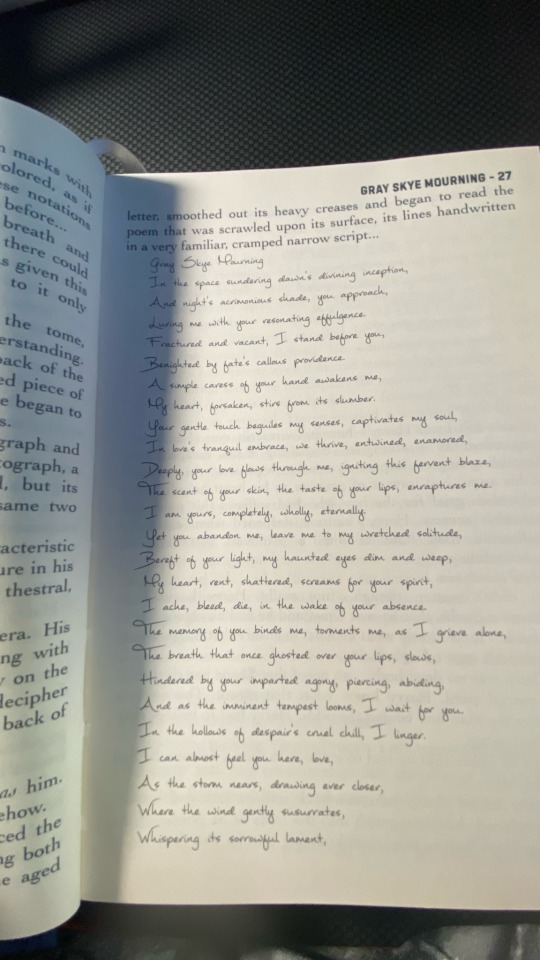 n marks with
olored, as if
se notations
before...
breath and
there could
s given this
to it only
the tome,
erstanding.
ack of the
ed piece of
e began to
s.
graph and
ograph, a
l, but its
same two
acteristic
ure in his
thestral,
era. His
ng with
y on the
decipher
back of
as him.
ehow.
ced the
ng both
e aged
GRAY SKYE MOURNING - 27
letter, smoothed out its heavy creases and began to read the
poem that was scrawled upon its surface, its lines handwritten
in a very familiar, cramped narrow script...
Gray Skye Mourning
In the space sundering dawn's divining inception,
And night's acrimonious shade, you approach,
Luring me with your resonating effulgence.
Fractured and vacant, I stand before you,
Benighted by fate's callous providence.
A simple caress of your hand awakens me,
My heart, forsaken, stirs from its slumber.
Your gentle touch beguiles my senses, captivates my soul,
In love's tranquil embrace, we thrive, entwined, enamored,
Deeply, your love flows through me, igniting this fervent blaze,
The scent of your skin, the taste of your lips, enraptures me.
I am yours, completely, wholly, eternally.
Yet you abandon me, leave me to my wretched solitude,
Bereft of your light, my haunted eyes dim and weep,
My heart, rent, shattered, screams for your spirit,
I ache, bleed, die, in the wake of your absence.
The memory of you binds me, torments me, as I grieve alone,
The breath that once ghosted over your lips, slows,
Hindered by your imparted agony, piercing, abiding,
And as the imminent tempest looms, I wait for you.
In the hollows of despair's cruel chill, I linger.
I can almost feel you here, love,
As the storm nears, drawing ever closer,
Where the wind gently susurrates,
Whispering its sorrowful lament,